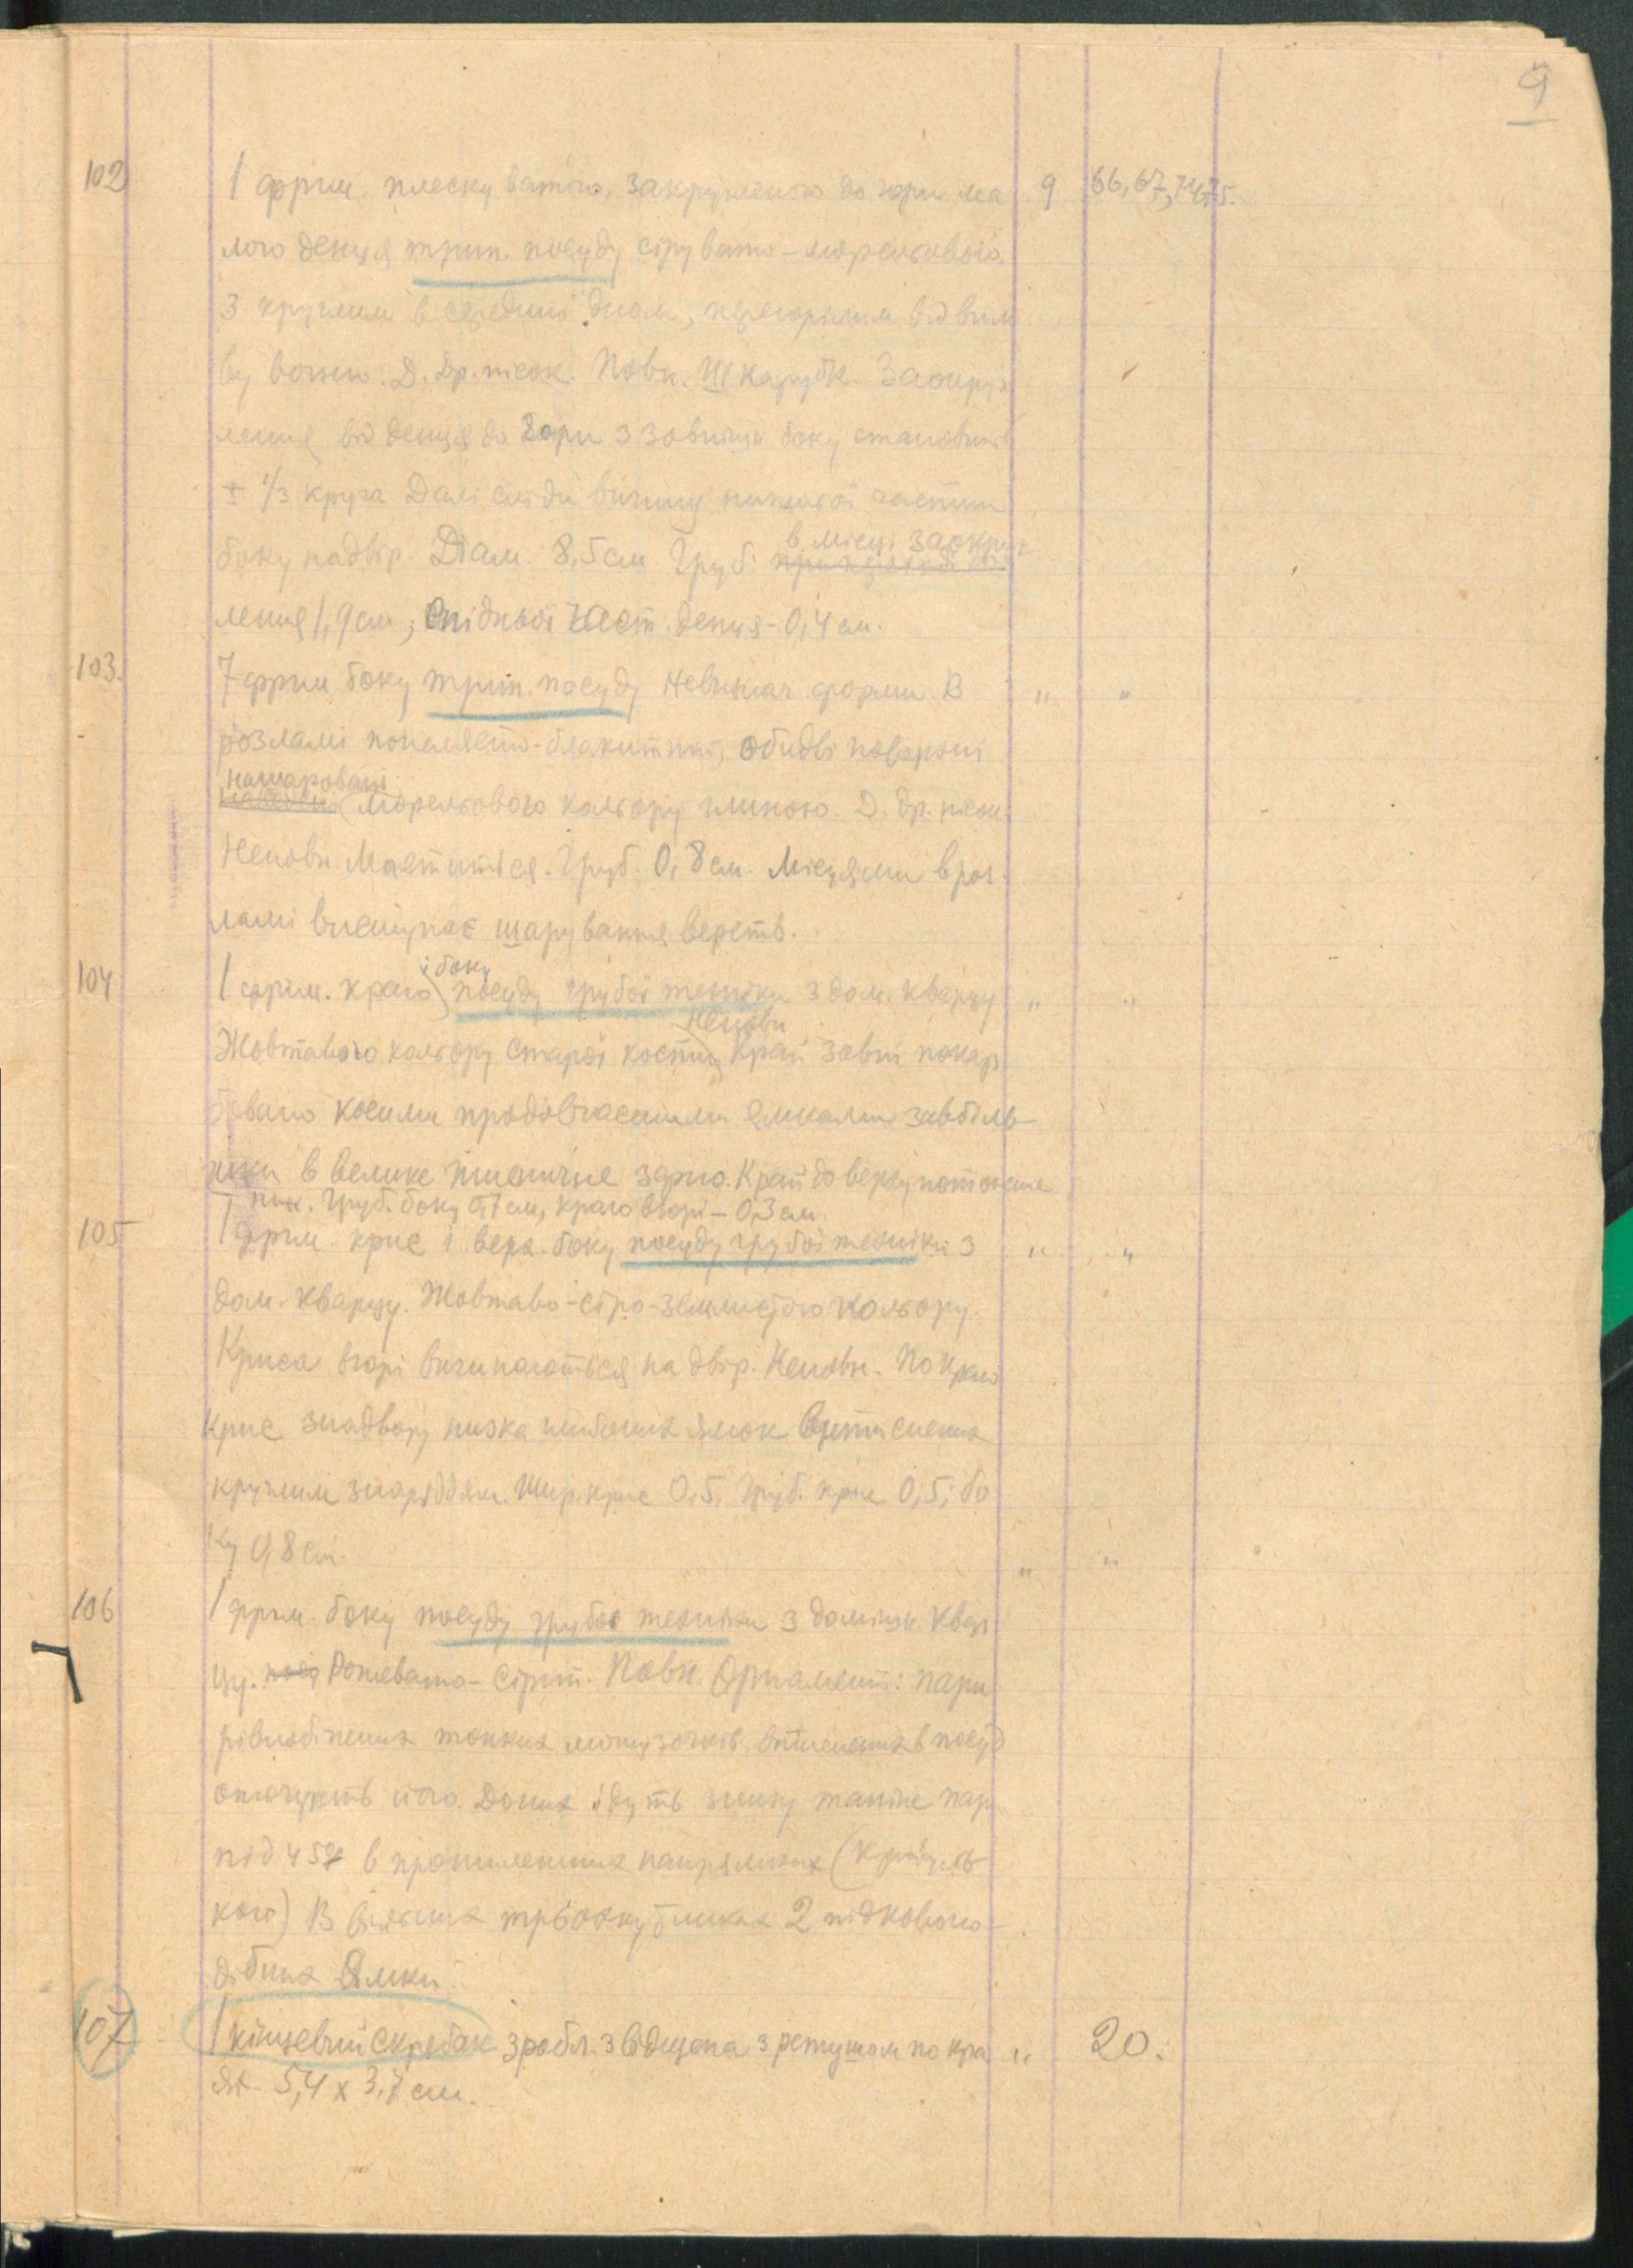 9
102 1 фрґм. плескуватого, закругленого до гори ма 9 66, 67, 74, 75.
лого денця трип. посуду сірувато-морельового.
З круглим в середині дном, перегорілим від впли
ву вогню. Д. др. пісок. Повн. Шкарубк. Заокруг
лення від денця до гори з зовнішн. боку становить
± 1/3 круга Далі сліди вигину нижньої частини
боку надвір. Діам. 8,5 см Груб. в місці заокруг
лення 1,9 см, спідньої част. денця - 0,4 см.
103. 7 фрґм боку трип. посуду невизнач. форми. В " "
розламі попелясто-блакитний, обидві поверхні
нашаровані морельового кольору глиною. Д. др. піском
Неповн. Маститься. Груб. 0,8 см. Місцями в роз-
ламі виступає шарування верств.
104 1 фрґм. краю і боку посуду грубої техніки з дом. кварцу " "
Жовтавого кольору старої кости Неповн Край зовні покар
бовано косими продовгасними ямками завбіль-
шки в велике пшеничне зерно. Край до верху потонше
ний. Груб. боку 0,7 см, краю вгорі - 0,3 см.
105 1 фрґм. крис і верх. боку посуду грубої техніки з " "
дом. кварцу. Жовтаво-сіро-землистого кольору.
Криса вгорі вигинаються на двір. Неповн. По краю
крис знадвору низка глибоких ямок витиснених
круглим знаряддям. Шир. крис 0,5, Груб. крис 0,5; бо
ку 0,8 см. " "
106 1 фрґм. боку посуду грубої техніки з домішк. квар
цу. Рожевато-сірий. Повн. Орнамент: пари
рівнобіжних тонких мотузочків, витиснених в посуд
оточують його. До них ідуть знизу такіж пари
під 45° в протилежних напрямках (
кого) В вільних трьохкутниках 2 підковопо-
дібних ямки.
107 1 кінцевий скребак зробл. з відщепа з ретушом по кра " 20.
ях. 5,4 х 3,7 см.